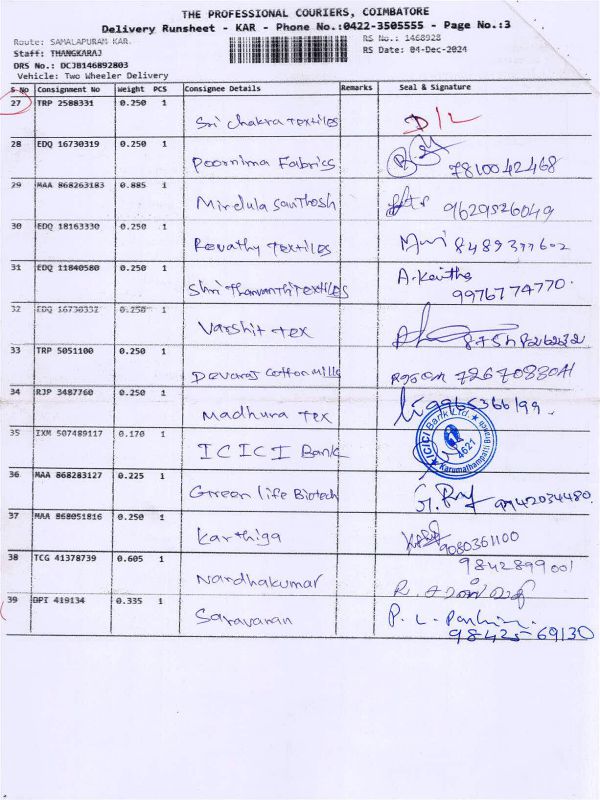 THE PROFESSIONAL COURIERS, COIMBATORE
Delivery Runsheet - KAR - Phone No.:0422-3505555 - Page No.:3
Route: SAMALAPURAM KAR. RS No.: 1468928
Staff: THANGKARAJ RS Date: 04-Dec-2024
DRS No.: DCJB146892803
Vehicle: Two Wheeler Delivery
S No Consignment No Weight PCS Consignee Details Remarks Seal & Signature
27 TRP 2588331 0.250 1
Sri Chakra Textiles D/L
28 EDQ 16730319 0.250 1
Poornima Fabrics 7810042468
29 MAA 868263183 0.885 1
Mirdula Santhosh 9629526049
30 EDQ 18163330 0.250 1
Revathy Textiles 8489377602
31 EDQ 11840580 0.250 1 A.Kavitha
Shri Thanvanthi Textiles 9976774770.
32 EDQ 16730332 0.250 1
Varshit Tex
33 TRP 5051100 0.250 1
Devaraj Cotton Mills
34 RJP 3487760 0.250 1
Madhura Tex 9965366199.
35 IXM 507489117 0.170 1
ICICI Bank
ICICI Bank Ltd. ★ Karumathampatti Branch ★
4621
36 MAA 868283127 0.225 1
Green life Biotech 9942034480.
37 MAA 868051816 0.250 1
Karthiga 9080361100
38 TCG 41378739 0.605 1 9842899001
Nandhakumar
39 DPI 419134 0.335 1
Saravanan P. L.
98425-69130